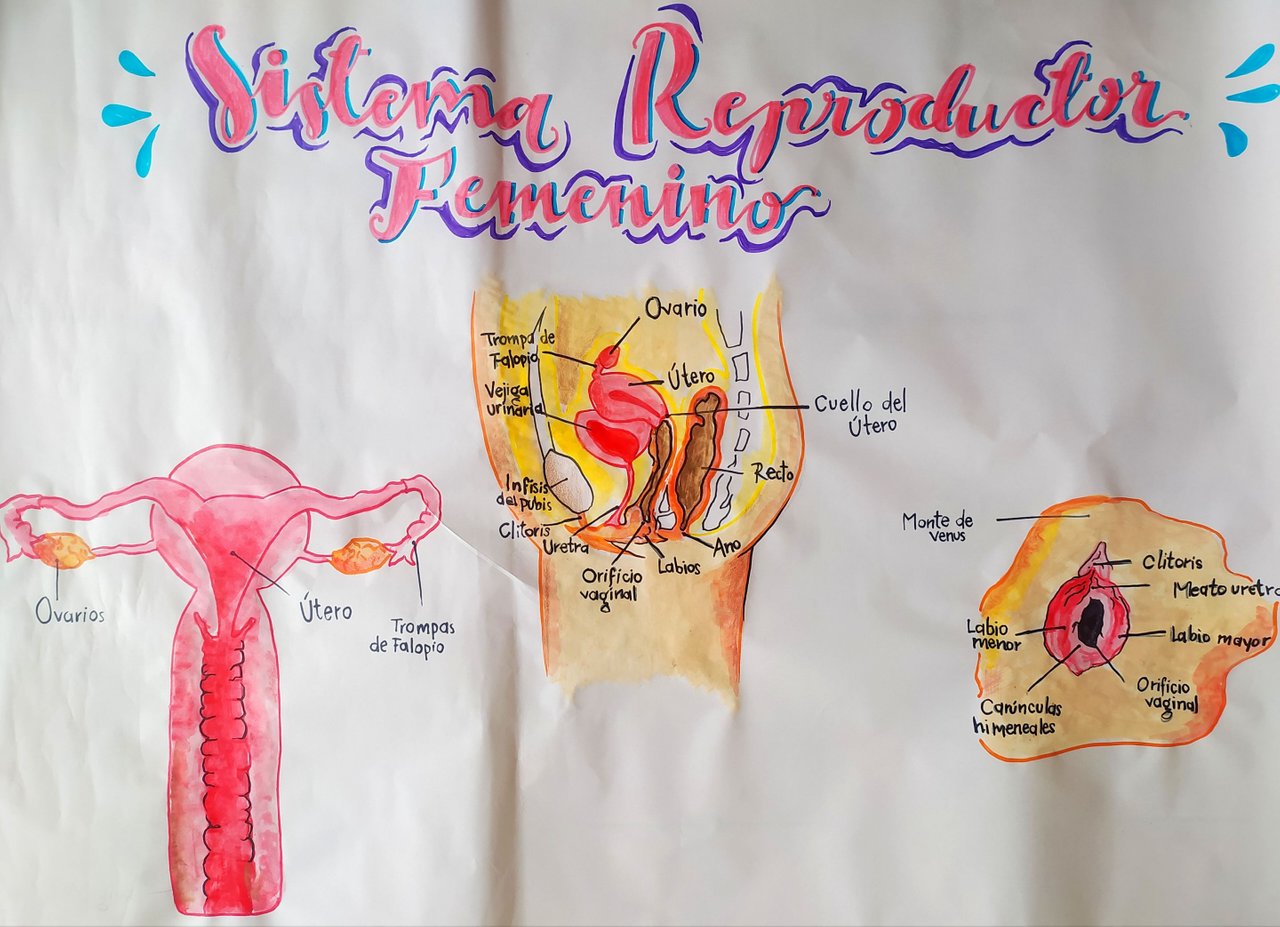 Sistema Reproductor
Femenino
Ovarios
Útero
Trompas
de Falopio
Ovario
Trompa de
Falopio
Útero
Vejiga
urinaria
Cuello del
Útero
Recto
Infisis
del pubis
Clitoris
Uretra
Orificio
vaginal
Labios
Ano
Monte de
venus
Clitoris
Meato uretra
Labio
menor
Labio mayor
Orificio
vaginal
Carúnculas
himeneales